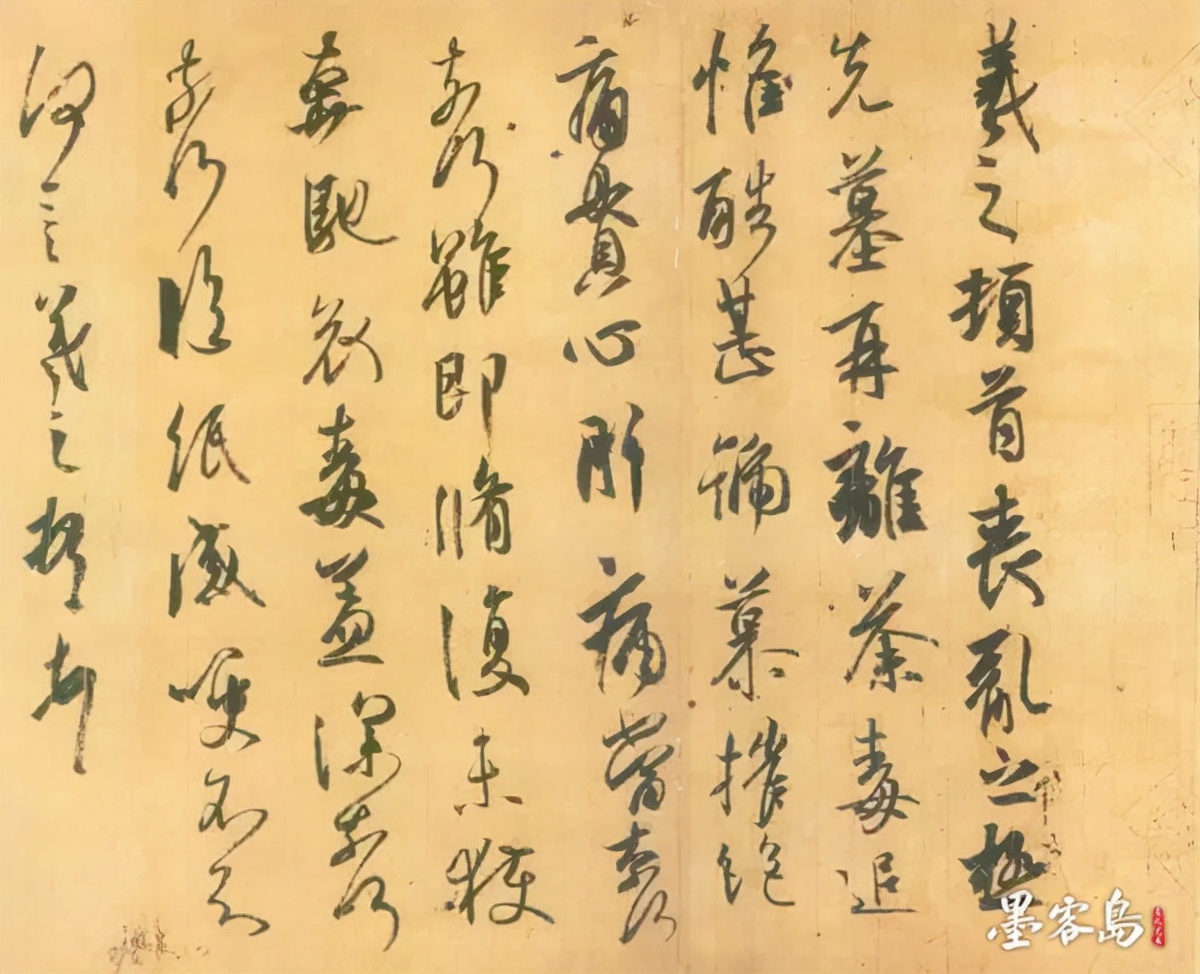 羲之頓首喪亂之極
先墓再離荼毒追
惟酷甚號慕摧絕
痛貫心肝痛當奈何
奈何雖即脩復未獲
奔馳哀毒益深奈何
奈何臨紙感哽不知
何言羲之頓首頓首
墨客島